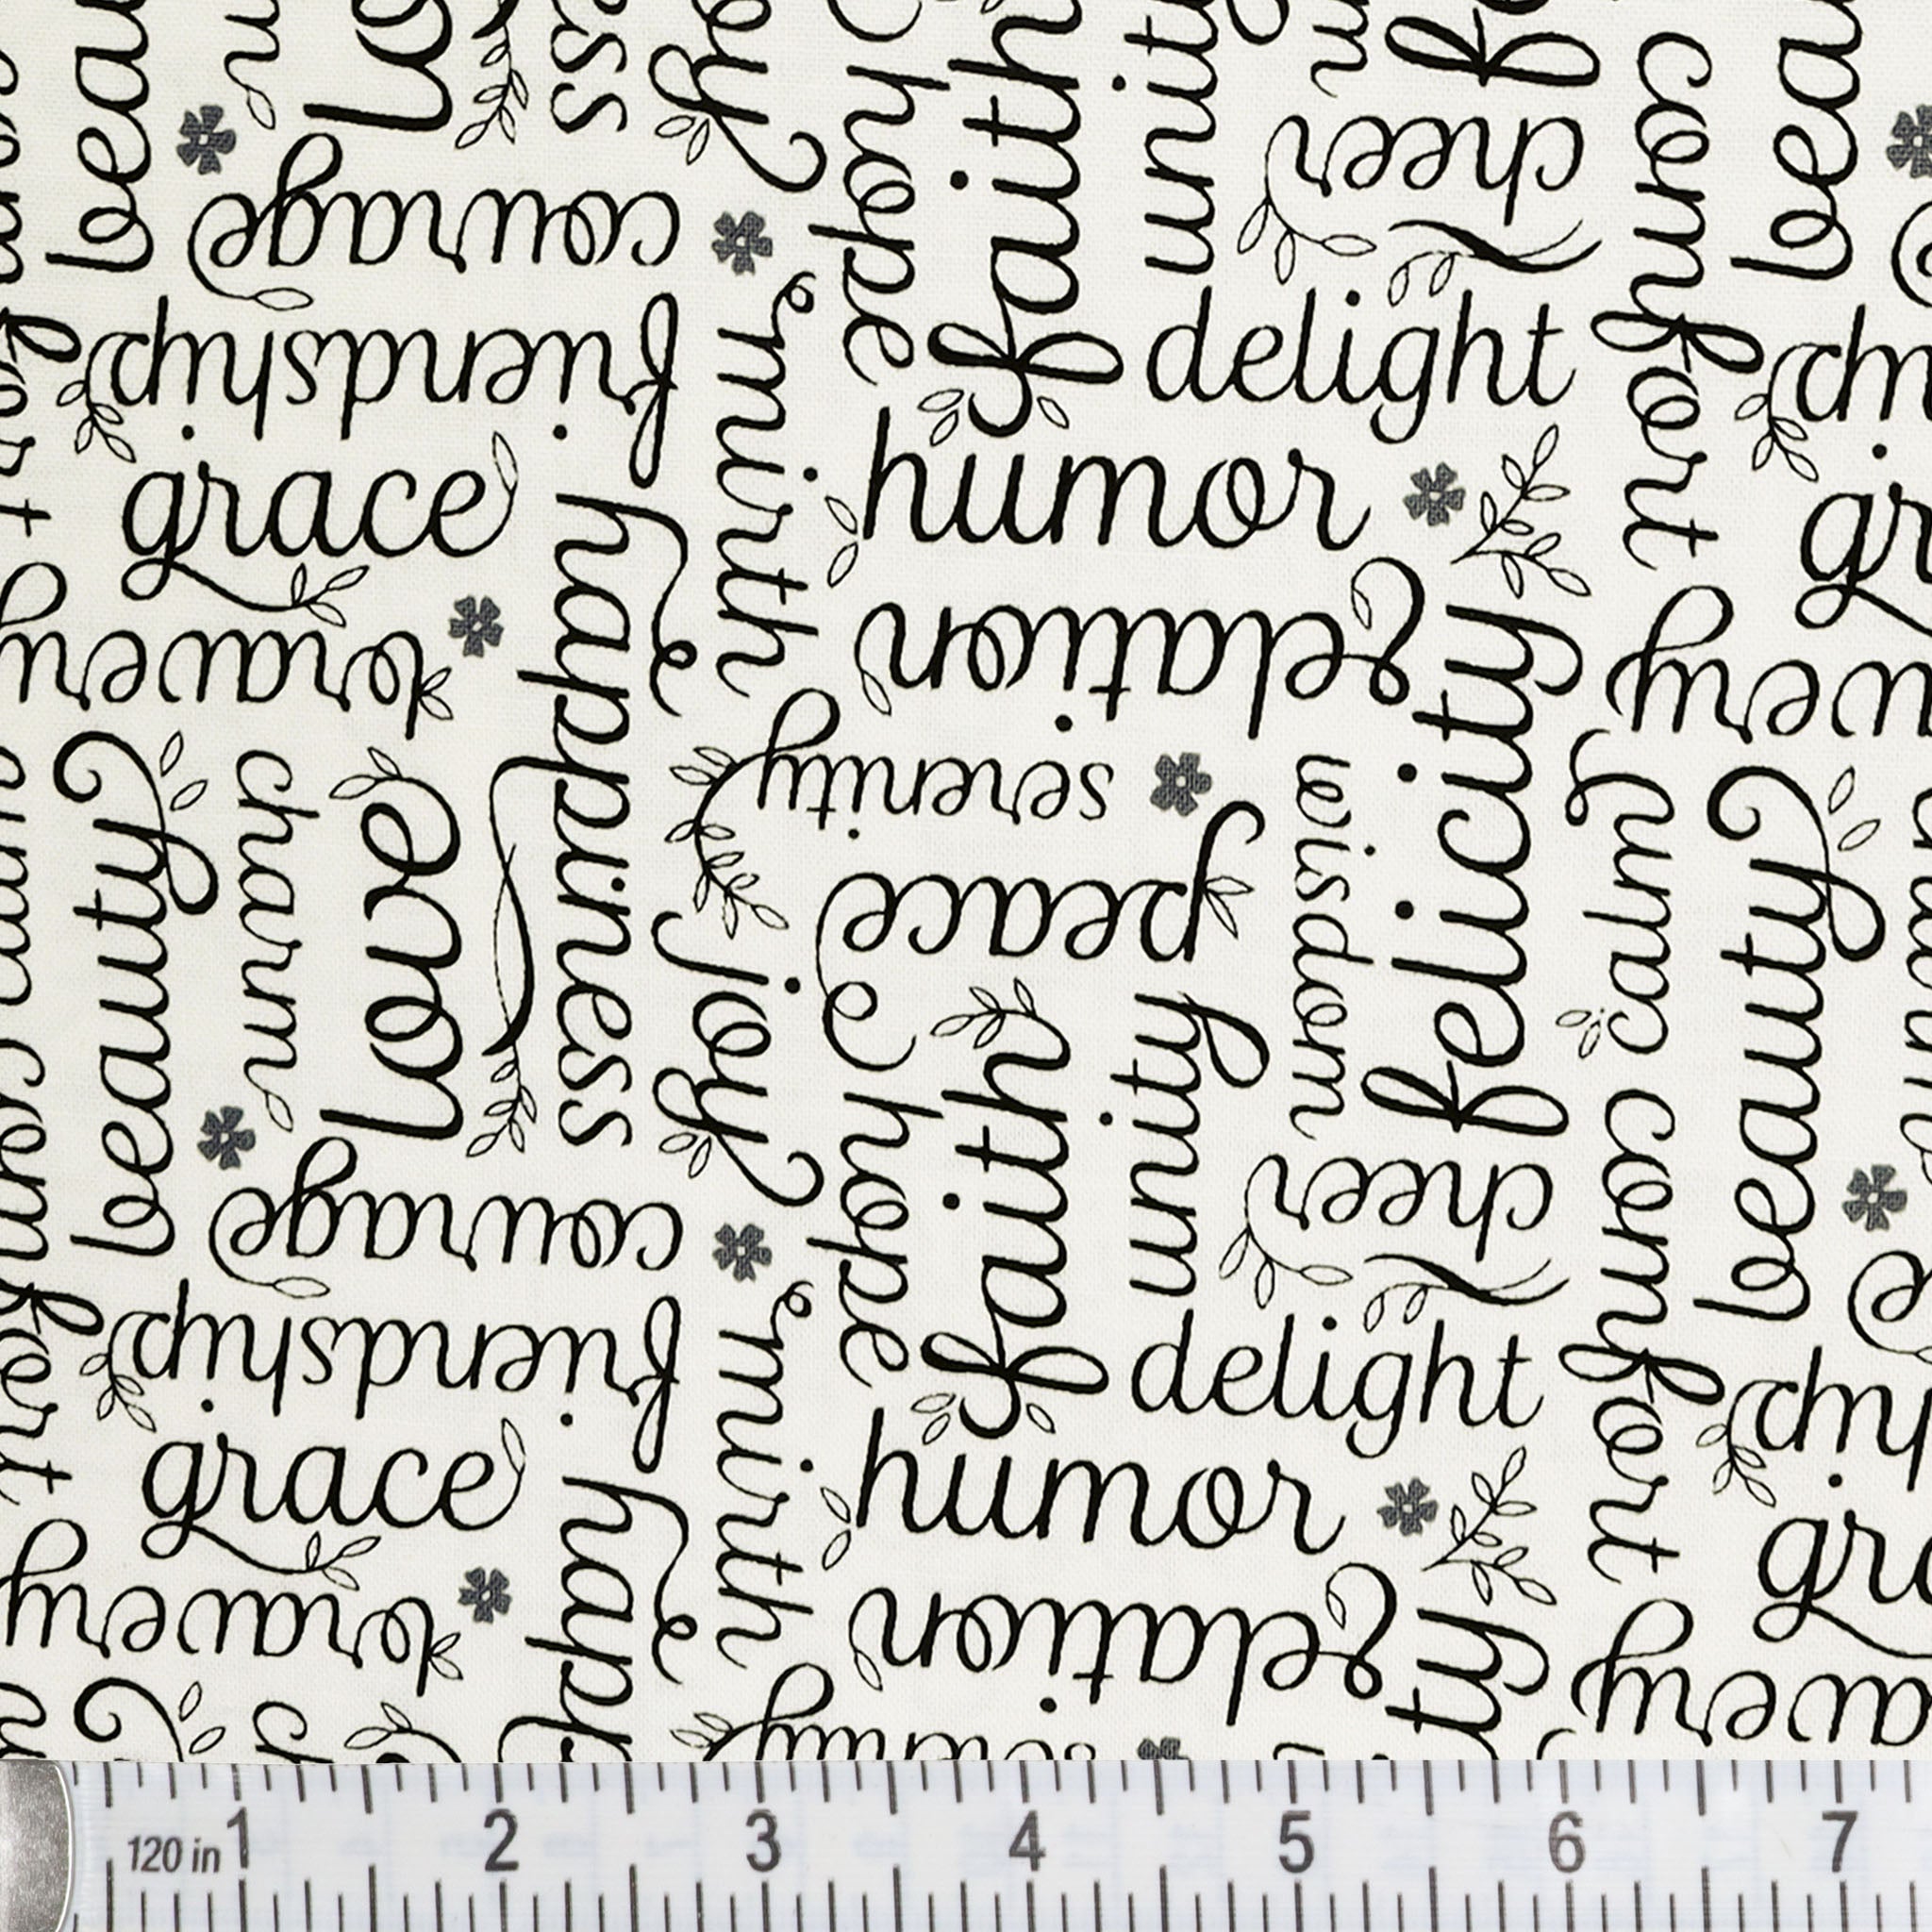 beau
hope
faith
unity
cheer
comfort
beau
courage
friendship
mirth
delight
grace
humor
happiness
bravery
elation
felicity
serenity
wisdom
calm
beauty
charm
love
peace
joy
beauty
hope
faith
unity
cheer
comfort
courage
friendship
mirth
delight
grace
humor
bravery
elation
serenity
120 in 1 2 3 4 5 6 7